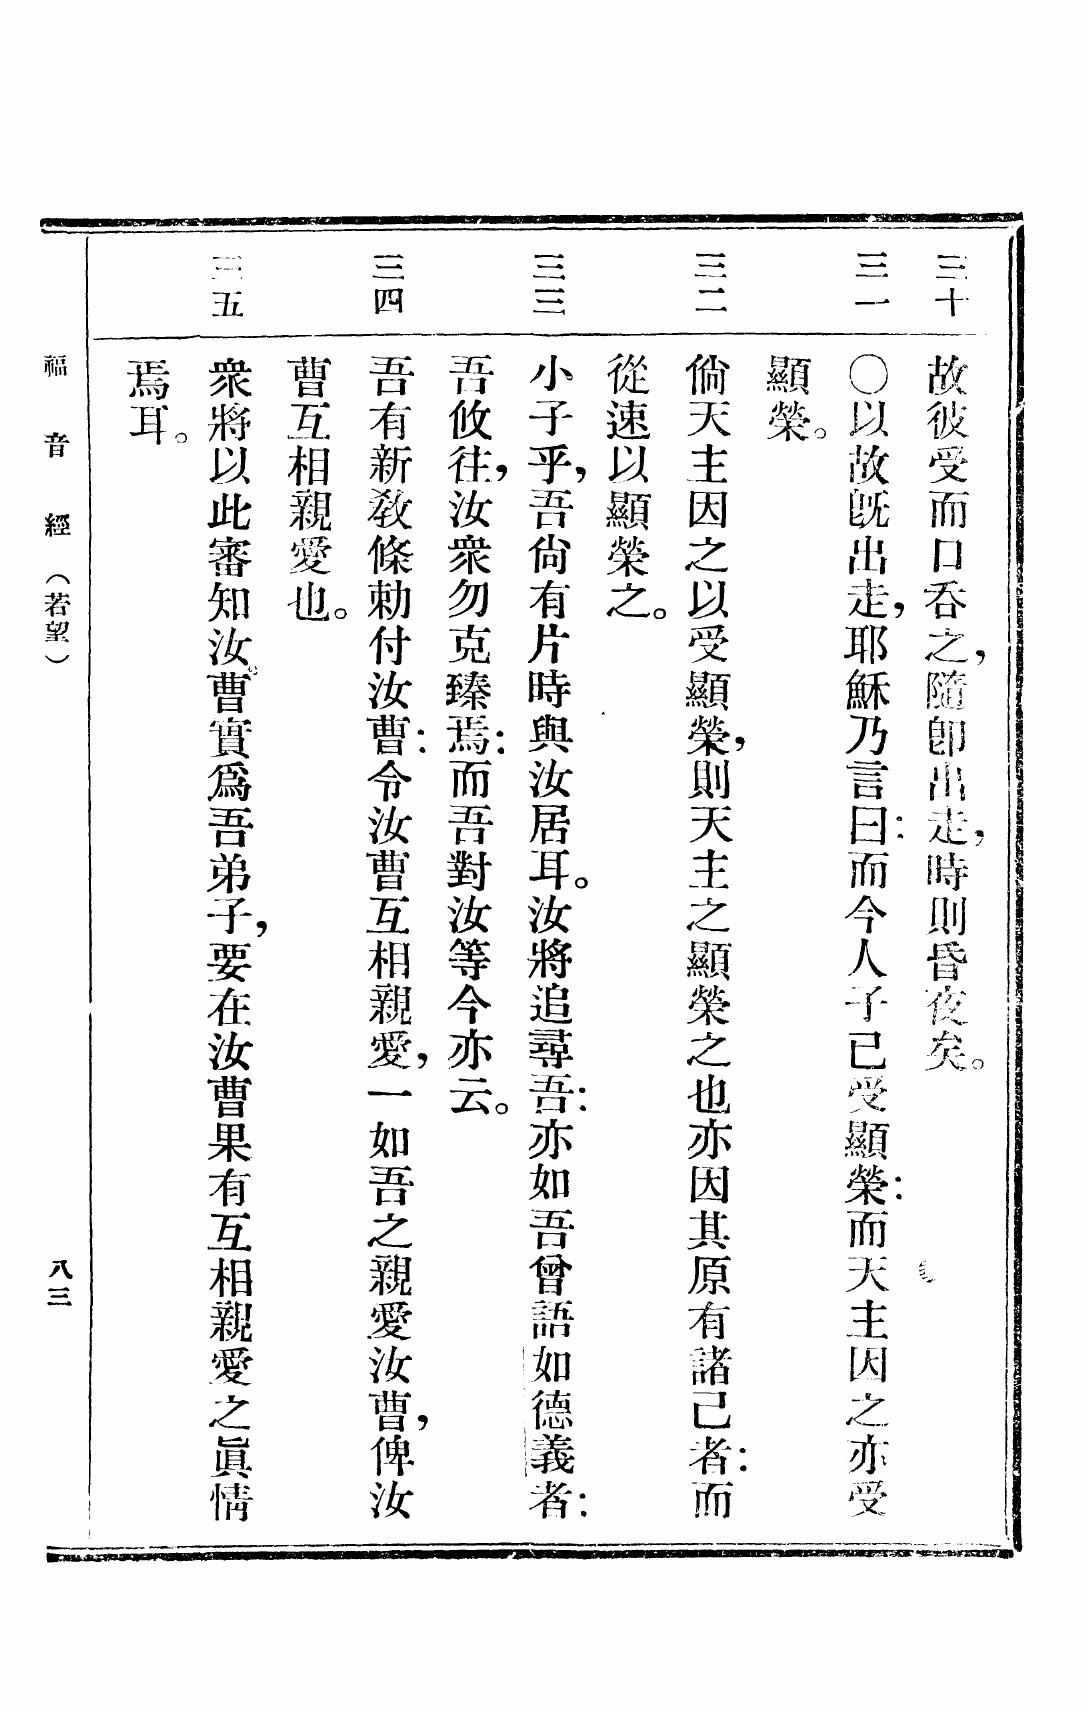 三十
故彼受而口呑之，隨卽出走，時則昏夜矣。
三一
〇以故旣出走，耶穌乃言曰：而今人子已受顯榮：而天主因之亦受
顯榮。
三二
倘天主因之以受顯榮，則天主之顯榮之也亦因其原有諸己者：而
從速以顯榮之。
三三
小子乎，吾尙有片時與汝居耳。汝將追尋吾：亦如吾曾語如德義者：
吾攸往，汝衆勿克臻焉：而吾對汝等今亦云。
三四
吾有新敎條勅付汝曹：令汝曹互相親愛，一如吾之親愛汝曹，俾汝
曹互相親愛也。
三五
衆將以此審知汝曹實爲吾弟子，要在汝曹果有互相親愛之眞情
焉耳。
福音經（若望）
八三